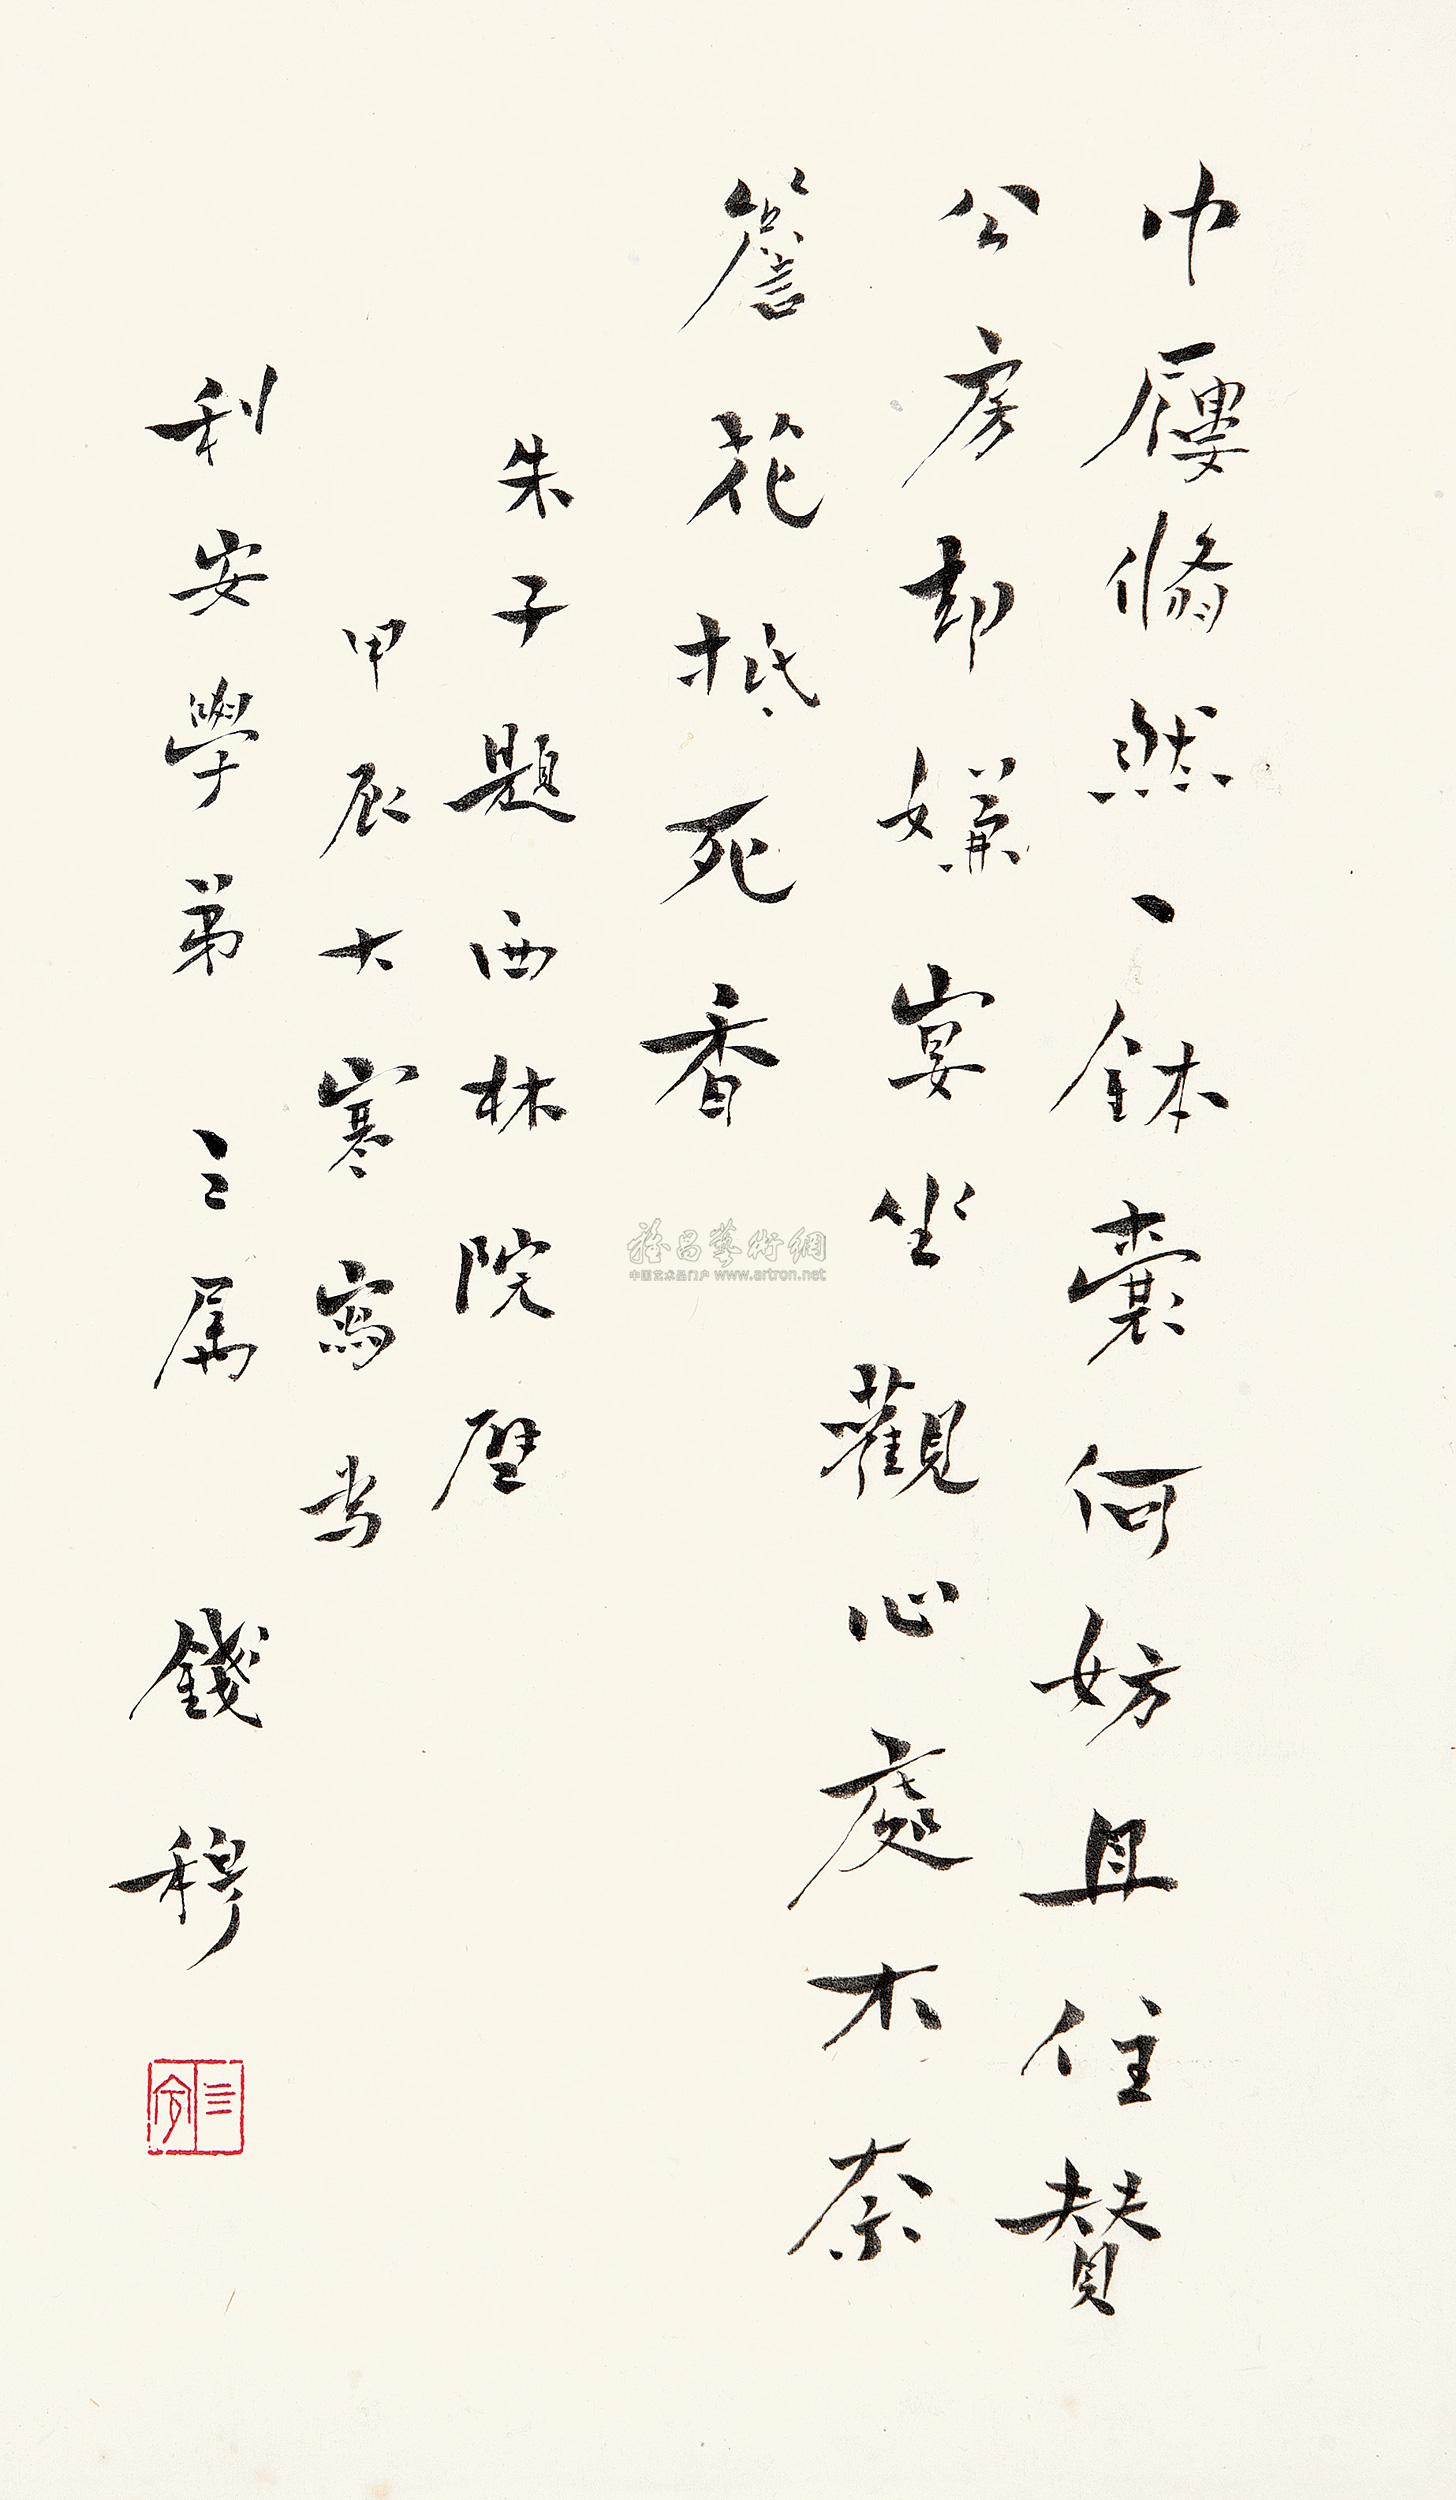 巾屨翛然一鉢囊何妨且住贊
公房却嫌宴坐觀心處不奈
簷花抵死香
朱子題西林院壁
甲辰大寒寫為
利安學弟之屬 錢穆
雅昌藝術網
中国艺术品门户 www.artron.net